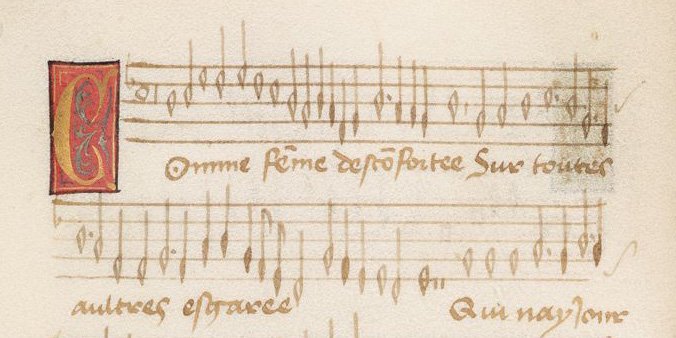 Comme fẽme descõfortee Sur toutes
aultres esgaree Qui nay Jour